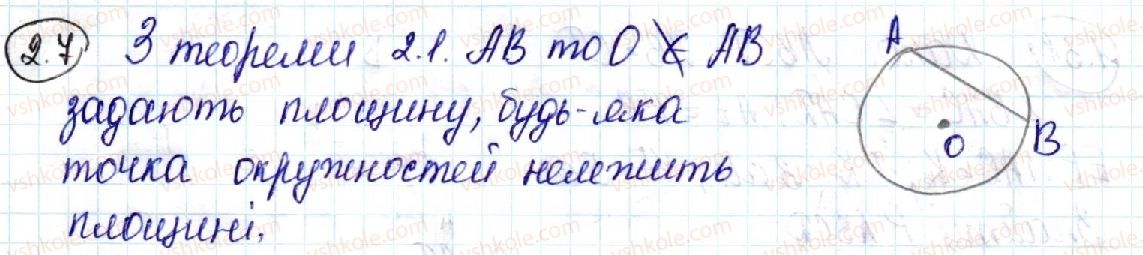 2.7 З теореми 2.1. AB то O ∉ AB
задають площину, будь-яка
точка окружностей нележить
площині.
A
B
O